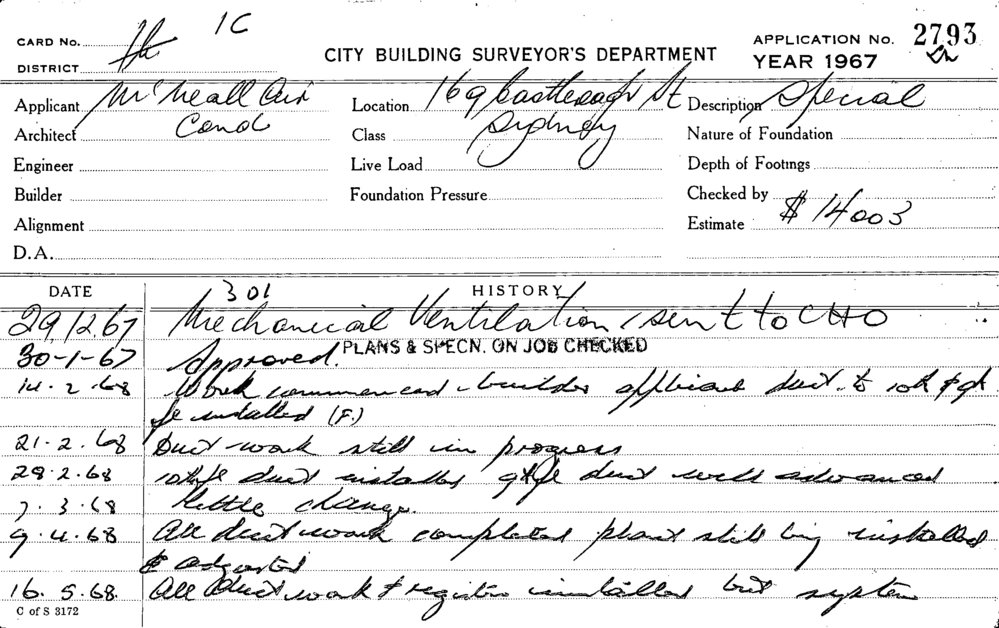 1C
CARD No.
DISTRICT
CITY BUILDING SURVEYOR'S DEPARTMENT
APPLICATION No. 2793
YEAR 1967
Applicant McNeall Air
Location 169 Castlereagh St
Description Special
Architect Cond
Class Sydney
Nature of Foundation
Engineer
Live Load
Depth of Footings
Builder
Foundation Pressure
Checked by
Alignment
Estimate $14003
D.A.
DATE
301
HISTORY
29/12.67 Mechanical Ventilation / sent to CHO
30-1-67 Approved. PLANS & SPECN. ON JOB CHECKED
14.2.68 Work commenced - builder applicant duct. to 10th & 9th
fl installed (F.)
21.2.68 Duct work still in progress
28.2.68 10th fl duct installed 9th fl duct well advanced
7.3.68 Little change.
9.4.68 All duct work completed plant still being installed
& adjusted
16.5.68. All duct work & register installed but system
C of S 3172